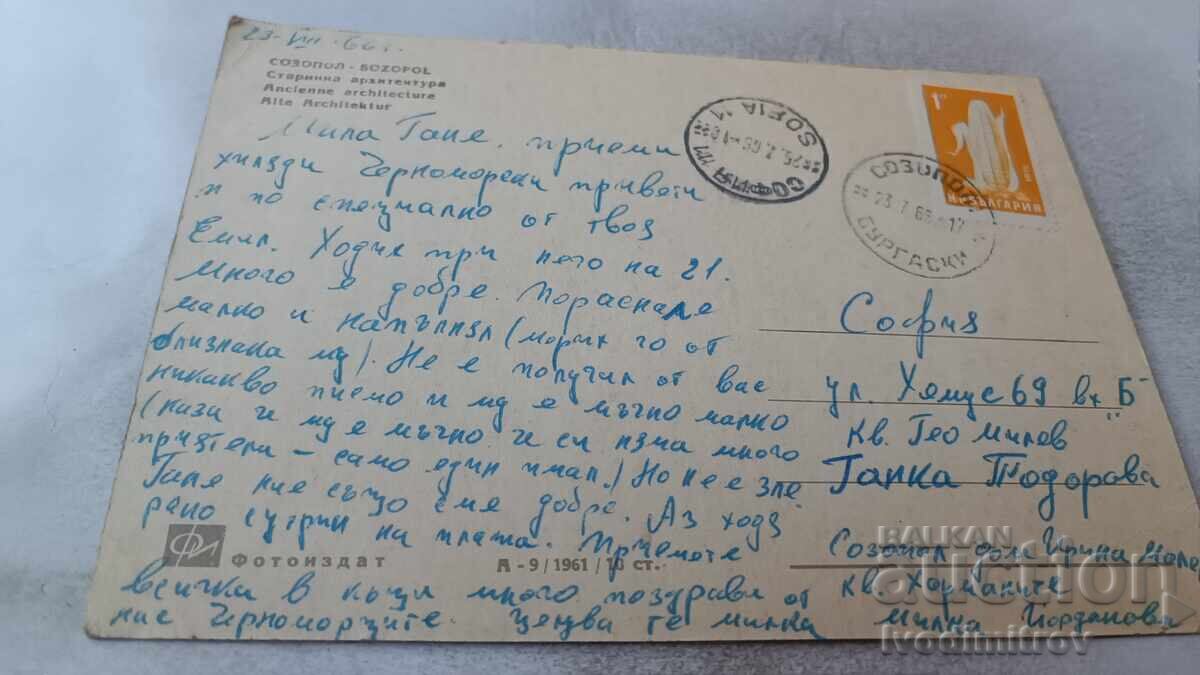 23-VIII-66 г.
СОЗОПОЛ - SOZOPOL
Старинна архитектура
Ancienne architecture
Alte Architektur
Мила Ганe, приеми
хиляди Черноморски привети
и по специално от твоя
Емил. Ходих при него на 21.
Много е добре. Пораснале
малко и напълнял (морих го от
близнака му). Не е получил от вас
никакво писмо и му е мъчно малко
(каза че му е мъчно че си няма много
приятели - само един имал.) Но не е зле
Ганe ние също сме добре. Аз ходя
рано сутрин на плажа. Приемете
всички в къщи много поздрави от
нас Черноморците. Целува те милка
ФИ
Фотоиздат
А-9/1961/16 ст.
SOFIA 11
СОФИЯ
1
НР БЪЛГАРИЯ
СОЗОПОЛ
БУРГАСКИ
София
ул. Хемус 69 вх "Б"
кв. Гео Милев
Ганка Тодорова
Созопол дом Ирина
кв. Харманите
Милка Йорданова
BALKAN
auction
ivodimitrov